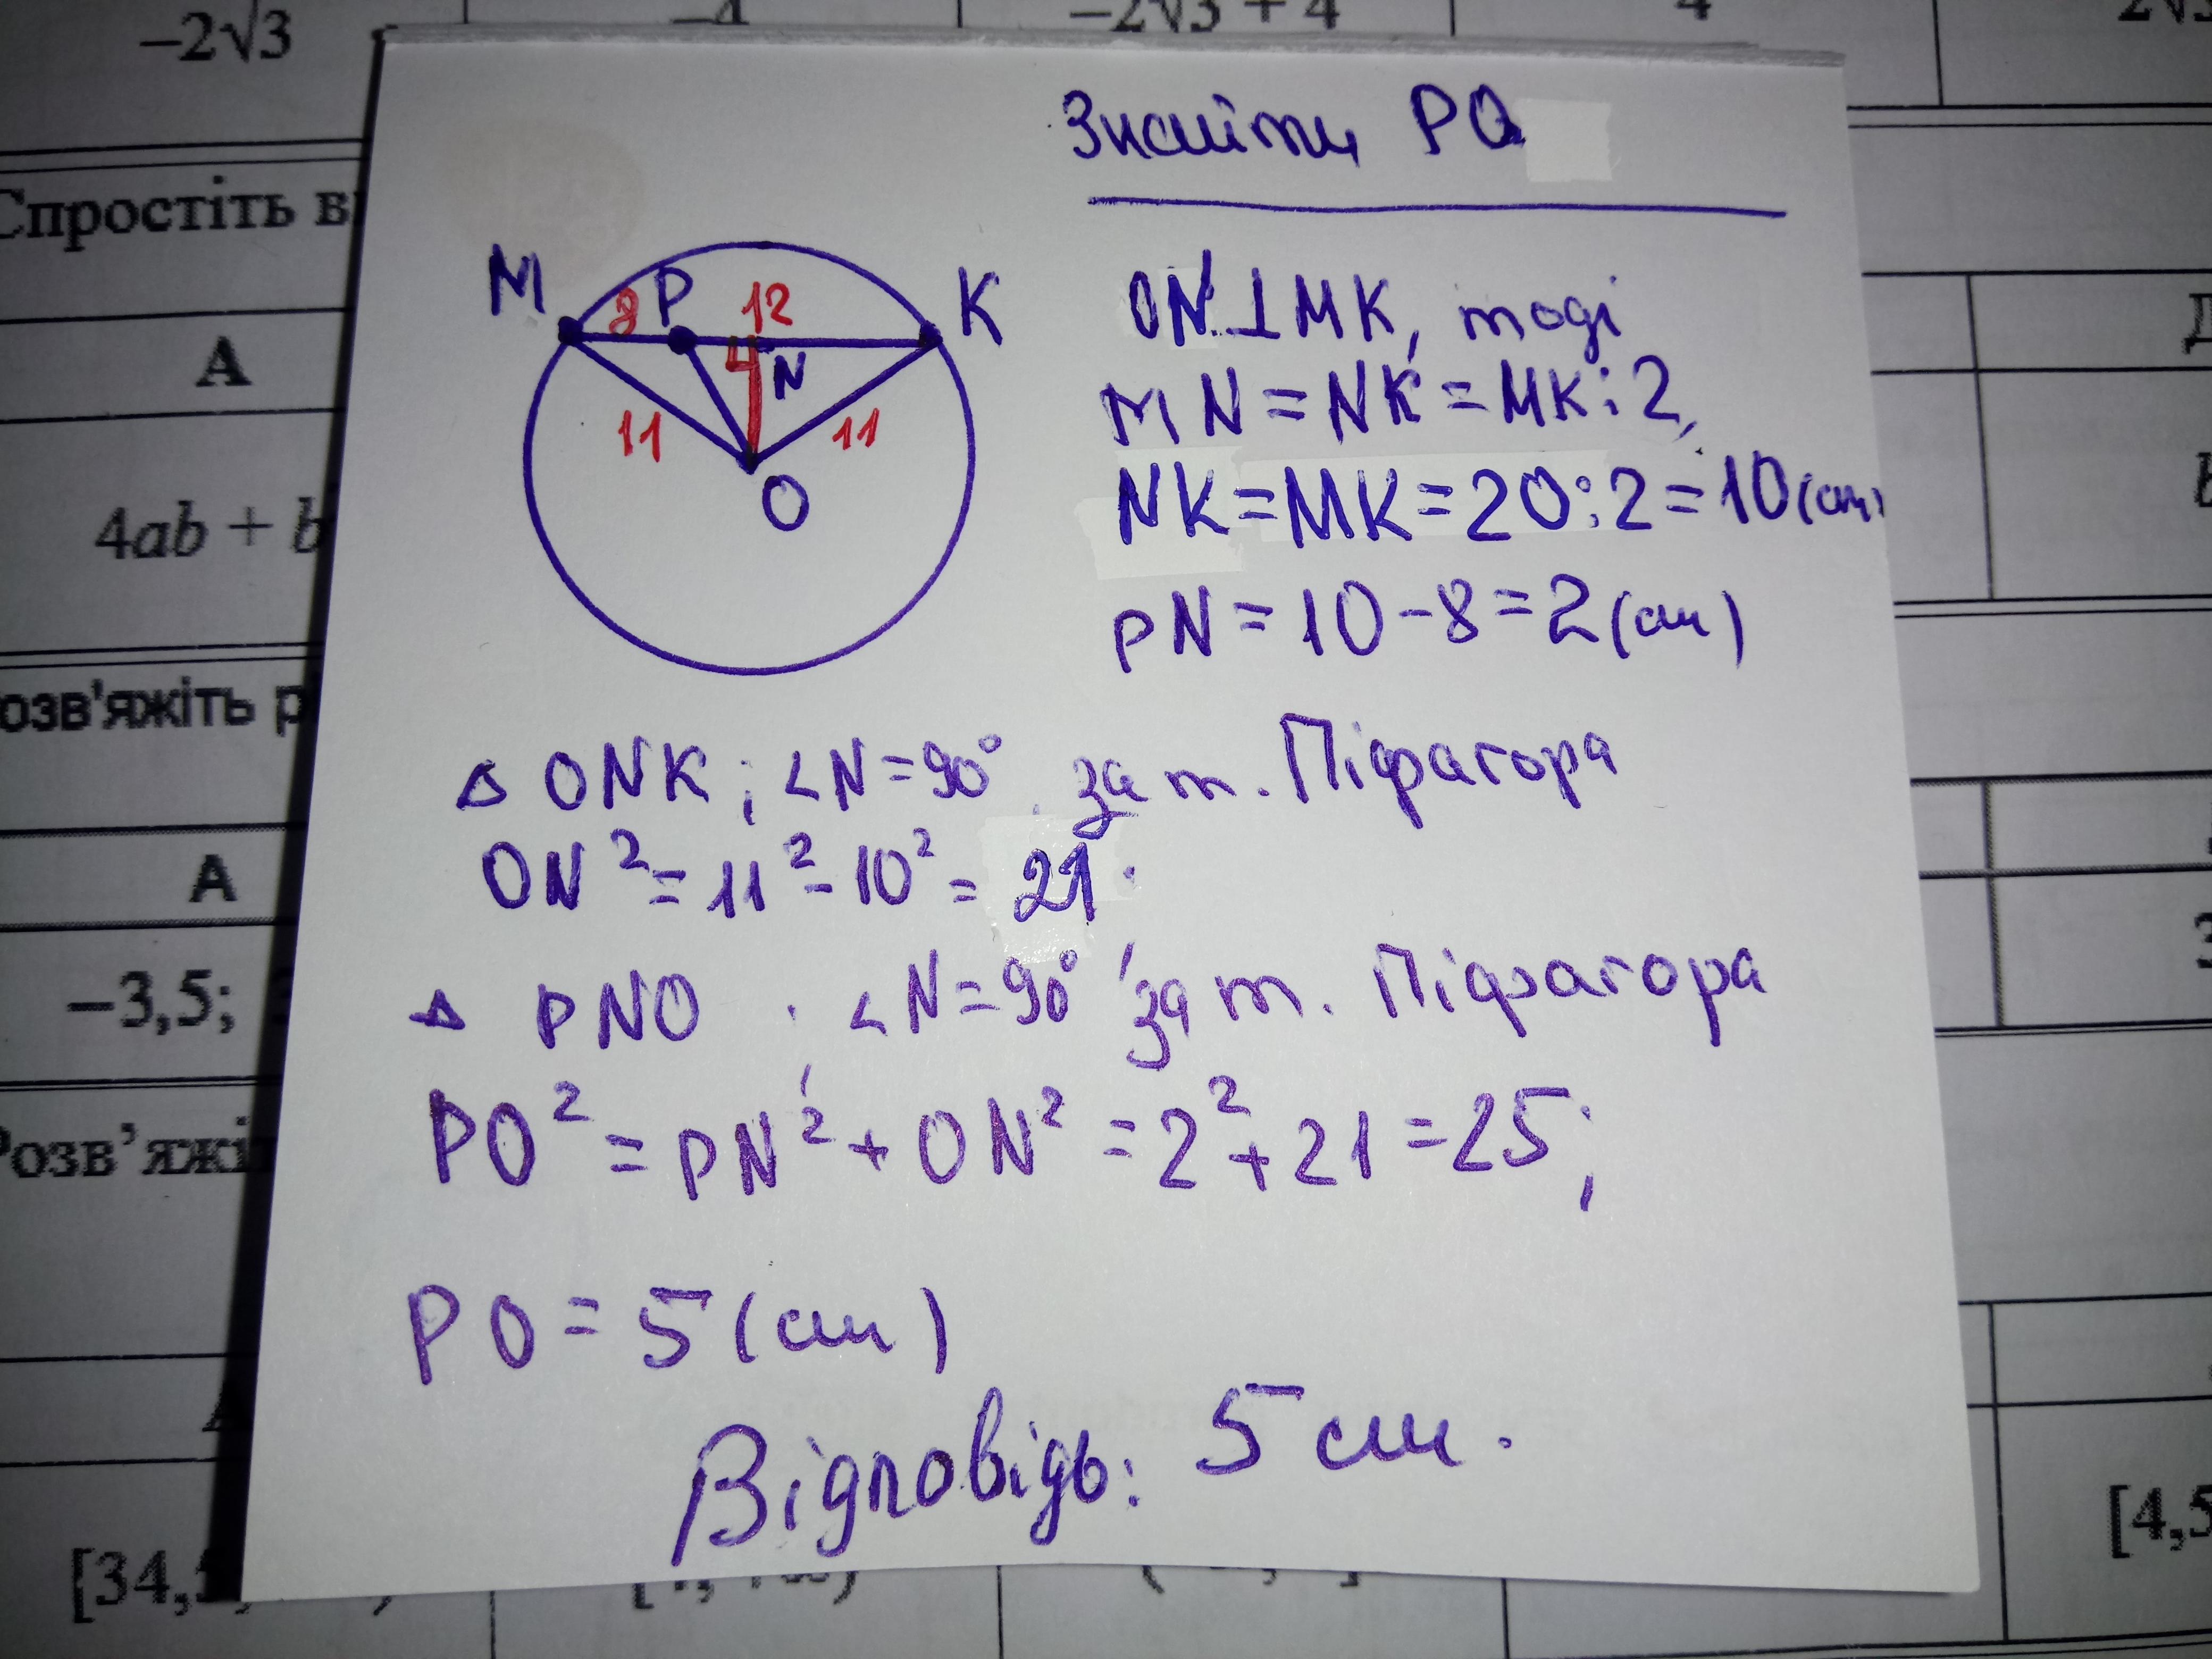 −2√3
−4
−2√3 + 4
4
2√3
Спростіть в
А
Д
4ab + b
b
озв'яжіть р
А
−3,5;
3
Розв’яжі
[34,5
[4,5
Знайти PO
M 8 P 12 K
4 N
11 11
O
ON ⊥ MK, тоді
MN = NK = MK : 2,
NK = MK = 20 : 2 = 10 (см)
PN = 10 − 8 = 2 (см)
△ ONK; ∠N = 90°. за т. Піфагора
ON² = 11² − 10² = 21.
△ PNO, ∠N = 90°, за т. Піфагора
PO² = PN² + ON² = 2² + 21 = 25;
PO = 5 (см)
Відповідь: 5 см.